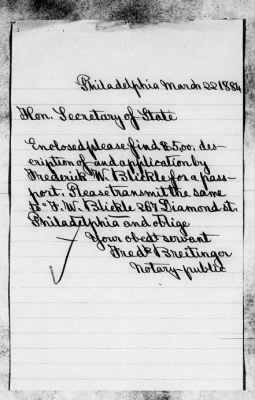 Philadelphia March 22 1884
Hon. Secretary of State
Enclosed please find $5.00, des-
cription of and application by
Frederick W. Blickle for a pass-
port. Please transmit the same
to F. W. Blickle 267 Diamond st.
Philadelphia and oblige
Your obedt servant
Fredk Breitinger
Notary public